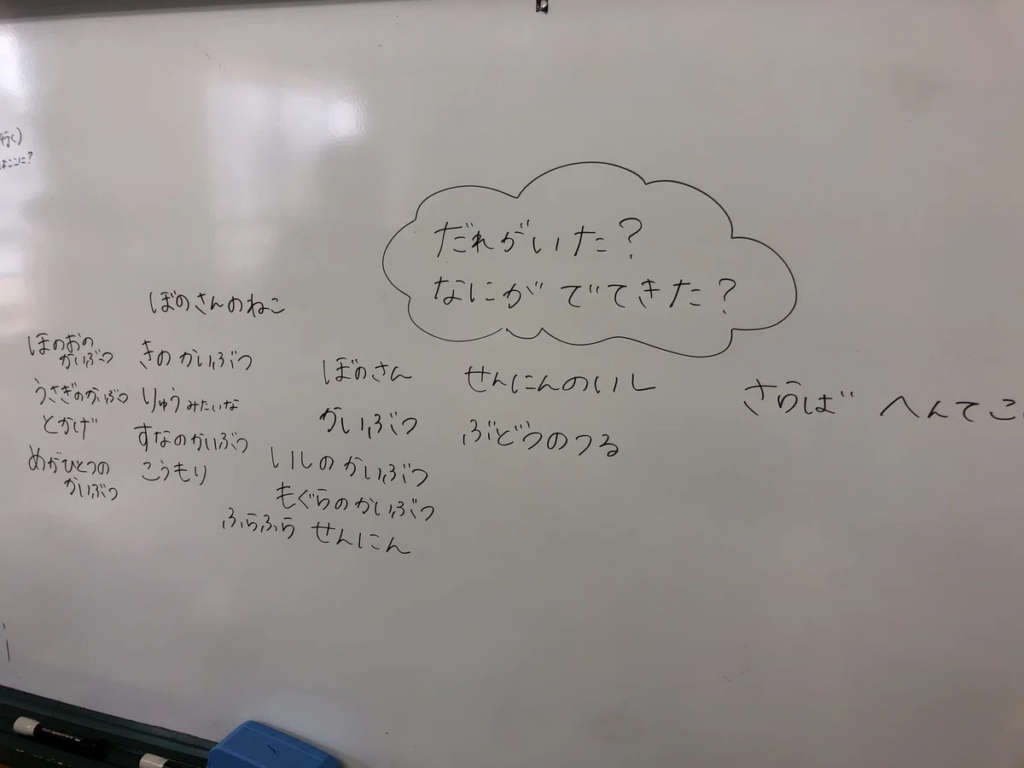 行く)
はここに?
だれがいた?
なにが でてきた?
ぼのさんのねこ
ほのおの
かいぶつ
うさぎのかいぶつ
とかげ
めがひとつの
かいぶつ
きの かいぶつ
りゅうみたいな
すなのかいぶつ
こうもり
ぼのさん
かいぶつ
いしの かいぶつ
もぐらのかいぶつ
ふらふら せんにん
せんにんのいし
ぶどうのつる
さらば へんてこ